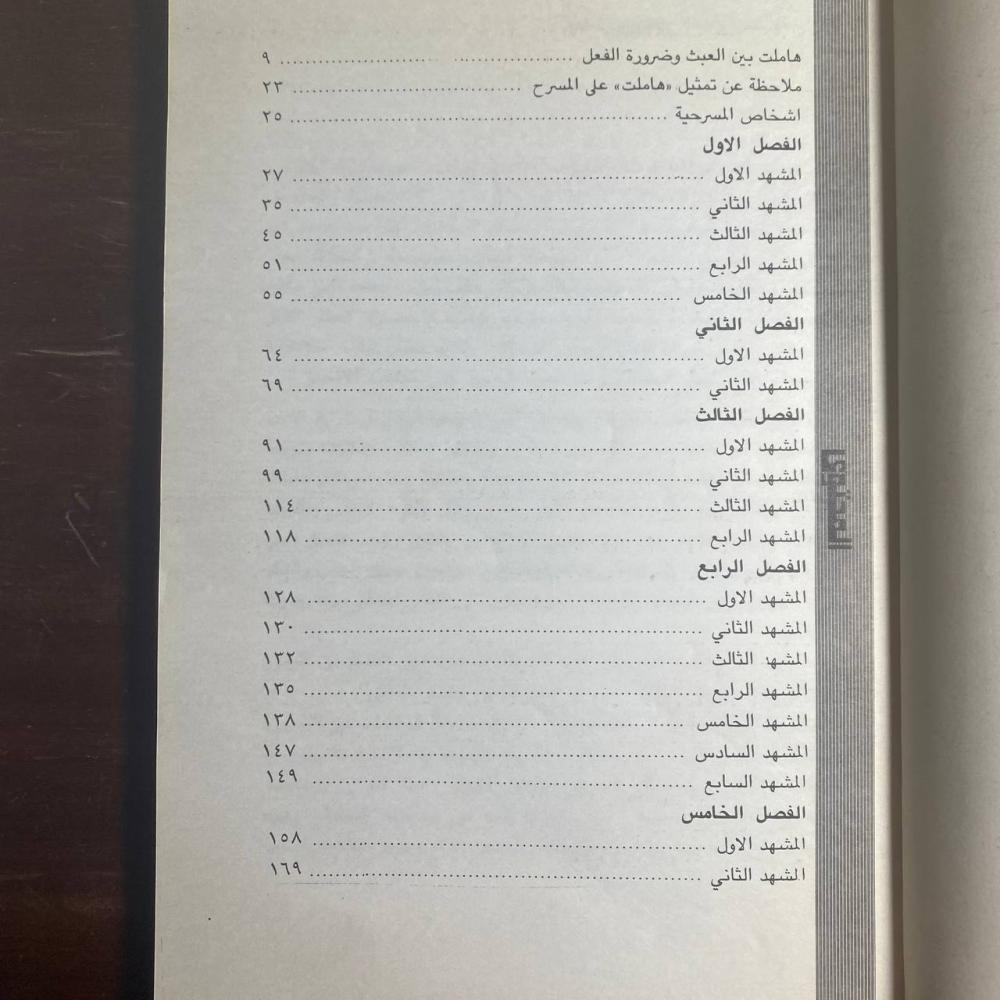 هاملت بين العبث وضرورة الفعل ........................ ٩
ملاحظة عن تمثيل «هاملت» على المسرح ........................ ٢٣
اشخاص المسرحية ........................ ٢٥
الفصل الاول
المشهد الاول ........................ ٢٧
المشهد الثاني ........................ ٣٥
المشهد الثالث ........................ ٤٥
المشهد الرابع ........................ ٥١
المشهد الخامس ........................ ٥٥
الفصل الثاني
المشهد الاول ........................ ٦٤
المشهد الثاني ........................ ٦٩
الفصل الثالث
المشهد الاول ........................ ٩١
المشهد الثاني ........................ ٩٩
المشهد الثالث ........................ ١١٤
المشهد الرابع ........................ ١١٨
الفصل الرابع
المشهد الاول ........................ ١٢٨
المشهد الثاني ........................ ١٣٠
المشهد الثالث ........................ ١٣٢
المشهد الرابع ........................ ١٣٥
المشهد الخامس ........................ ١٣٨
المشهد السادس ........................ ١٤٧
المشهد السابع ........................ ١٤٩
الفصل الخامس
المشهد الاول ........................ ١٥٨
المشهد الثاني ........................ ١٦٩